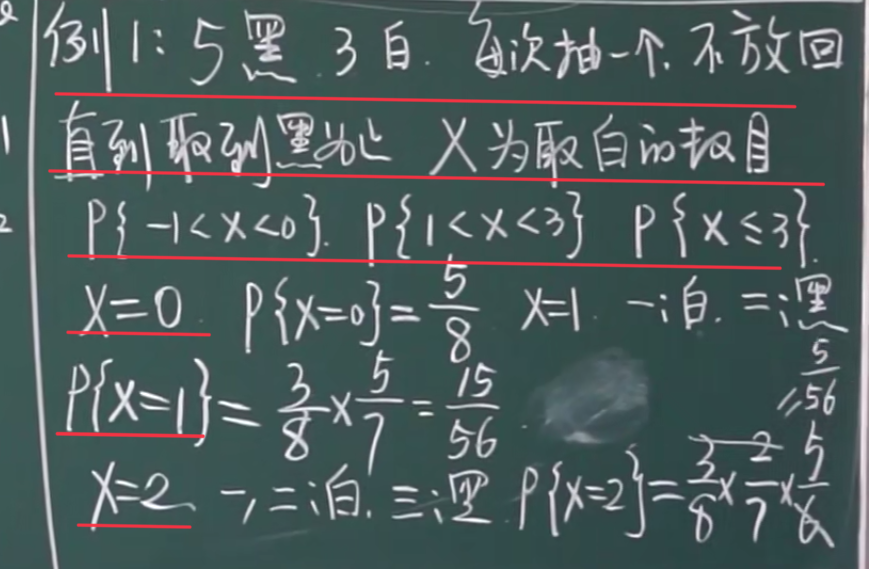 例1: 5黑.3白. 每次抽一个.不放回
直到取到黑为止 X为取白的数目
P{-1<X<0}. P{1<X<3} P{X≤3}.
X=0 P{X=0}=5/8 X=1. 一:白. 二:黑
P{X=1}=3/8×5/7=15/56
=5/56
X=2 一,二:白.三:黑 P{X=2}=3/8×2/7×5/6